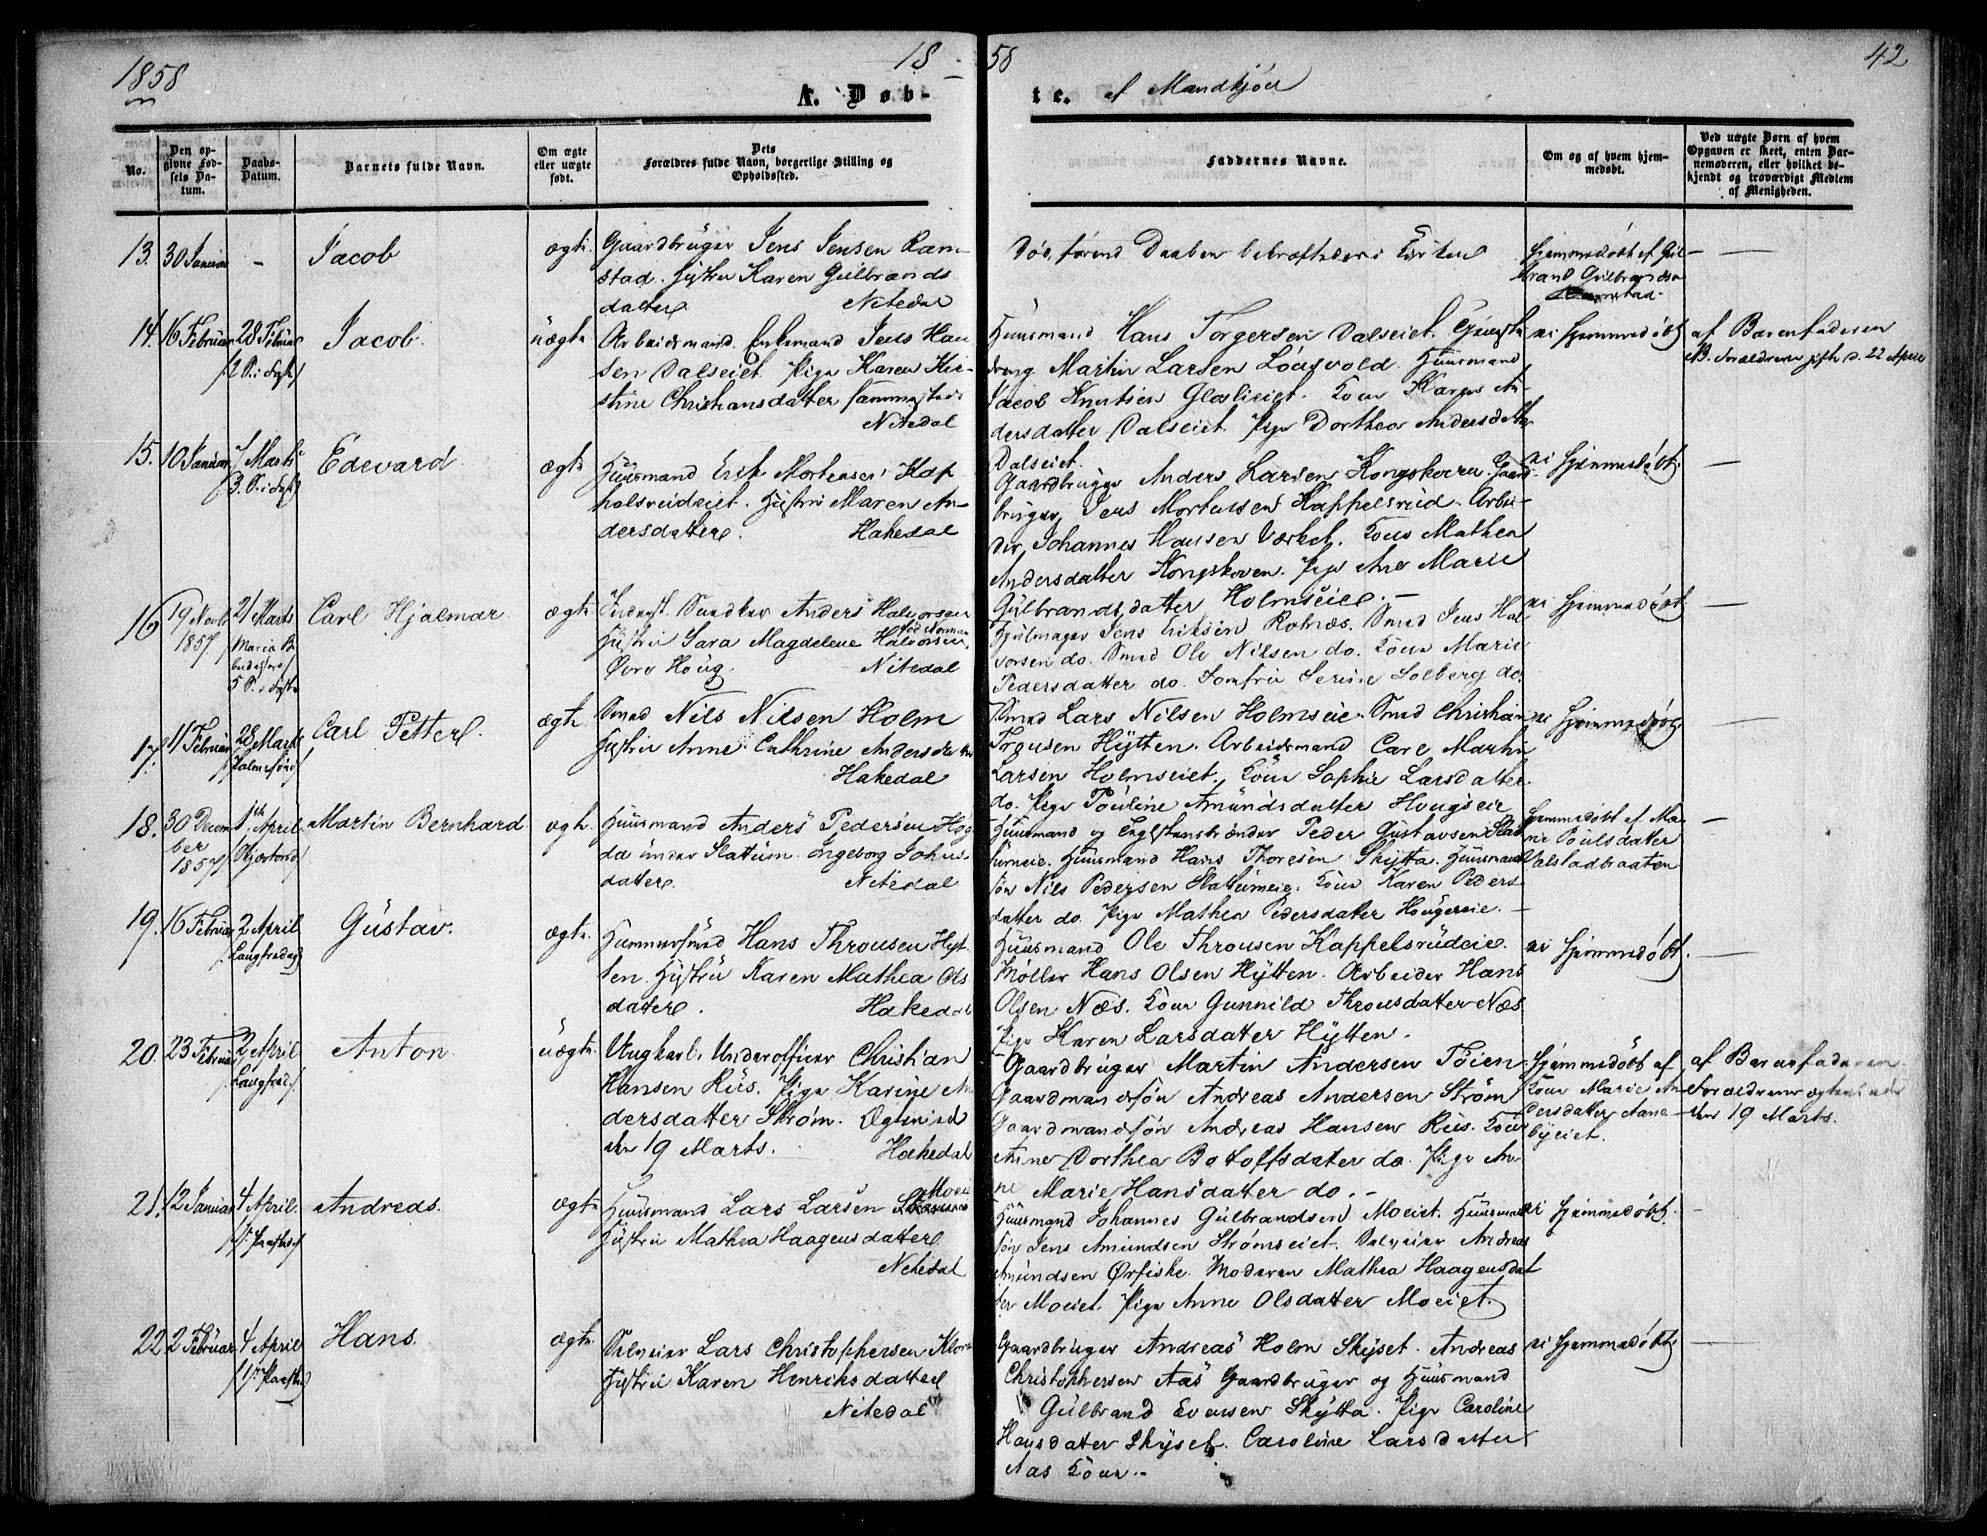 1858
18 58
42
A. Døb- te. af Mandkjøn
No.
Den op-
givne Fød-
sels Da-
tum.
Daabs-
Datum.
Barnets fulde Navn.
Om ægte
eller uægte
født.
Dets
Forældres fulde Navn, borgerlige Stilling og
Opholdssted.
Faddernes Navne.
Om og af hvem hjem-
medøbt.
Ved uægte Børn af hvem
Opgaven er skeet, enten Bar-
nemoderen, eller hvilket be-
kjendt og troværdigt Medlem
af Menigheden.
13. 30 Januar - Jacob ægte
Gaardbruger Jens Jensen Ram-
stad. Hustru Karen Gulbrands
datter Nitedal
Død, førend Daaben bekræftedes i Kirken
Hjemmedøbt af Gul
brand Gulbrandsen
—
14. 16 Februar 28 Februar
/2 S. i Faste/
Jacob. uægte
Arbeidsmand. Enkemand Jens Han
sen Dalseiet. Pige Karen Kir-
stine Christiansdatter sammesteds
Nitedal
Huusmand Hans Torgersen Dalseiet.
dreng Martin Larsen Huusmand
Jacob Knutsen Kone Karen An-
dersdatter Dalseiet. Pige Dorthea Andersdatter
Dalseiet.
ei hjemmedøbt
af Barnefaderen
NB. Forældrene gift d. 22 April
15. 10 Januar 7 Marts
3. S. i Faste
Edevard ægte
Huusmand Erik Mortensen Kap
pelsrudeiet. Hustru Maren An-
dersdatter. Hakedal
Gaardbruger Anders Larsen Kongskoven. Gaard
bruger Jens Mortensen Kappelsrud. Arbei-
der Johannes Hansen Værket. Kone Mathea
Andersdatter Kongskoven. Pige Ane Marie
Gulbrandsdatter Holmseie. -
ei hjemmedøbt.
—
16 19 Novb
1857
21 Marts
Maria B
budelse
5 S. i Faste
Carl Hjalmar ægte
Snedker Anders Halvorsen
Hustru Sara Magdelene Halvorsen
fød Norman
Øvre Houg. Nitedal
Hjulmager Jens Eriksen Rotnæs. Smed Jens Hal
vorsen do. Smed Ole Nilsen do. Kone Marie
Pedersdatter do. Jomfru Serine Solberg do.
ei hjemmedøbt
—
17. 11 Februar 28 Marts
/Palmesønd/
Carl Petter. ægte
Smed Nils Nilsen Holm
Hustru Anne Cathrine Andersdatter
Hakedal
Smed Lars Nilsen Holmseie. Smed Christian
Hytten. Arbeidsmand Carl Martin
Larsen Holmseiet. Kone Sophie Larsdatter
do. Pige Pouline Amundsdatter Hougseie
ei hjemmedøbt
—
18. 30 Decem
ber
1857
1st April
Skjærtorsd/
Martin Bernhard ægte.
Huusmand Anders Pedersen Høg
da under Slattum. Ingeborg Johns
datter. Nitedal
Huusmand og Peder Gustavsen Slat
tumeie. Huusmand Hans Thoresen Skytta. Huusmand
søn Nils Pedersen Slattumeie. Kone Karen Peders
datter do. Pige Mathea Pedersdatter Hougereie. -
Hjemmedøbt af Ma-
rie Poulsdatter
Dalstadbraaten
—
19. 16 Februar 2 April
Langfredag
Gustav. ægte.
Hammersmed Hans Thronsen Hyt-
ten. Hustru Karen Mathea Ols
datter. Hakedal
Huusmand Ole Thronsen Kappelsrudeie.
Møller Hans Olsen Hytten. Arbeider Hans
Olsen Næs. Kone Gunnild Thronsdatter Næs
Pige Karen Larsdatter Hytten.
ei hjemmedøbt.
—
20. 23 Februar 2 April
Langfred./
Anton. uægte
Ungkarl Underofficer Christian
Hansen Rus. Pige Karine An
dersdatter Strøm. Ægteviede
den 19 Marts. Hakedal
Gaardbruger Martin Andersen Tøien
Gaardmandssøn Andreas Andersen Strøm
Gaardmandssøn Andreas Hansen Rus. Kone
Anne Dorthea Botolfsdatter do. Pige An-
ne Marie Hansdatter do. -
Hjemmedøbt af
Kone Marie An-
dersdatter Aane-
byeiet.
af Barnefaderen
Forældrene ægteviede
den 19 Marts.
21. 12 Januar 4 April.
/1. Paasked
Andreas. ægte
Huusmand Lars Larsen Moeie
Hustru Mathea Haagensdatter
Nitedal
Huusmand Johannes Gulbrandsen Moeiet. Huusmand
søn Jens Amundsen Strømseiet. Selveier Andreas
Amundsen Ørfiske. Moderen Mathea Haagensdat
ter Moeiet. Pige Anne Olsdatter Moeiet.
ei hjemmedøbt.
—
22 2 Februar 4 April
/1ste Paaskd
Hans. ægte.
Selveier Lars Christophersen
Hustru Karen Henriksdatter
Nitedal
Gaardbruger Andreas Holm Skyset. Andreas
Christophersen Aas Gaardbruger og Huusmand
Gulbrand Evensen Skytta. Pige Caroline
Hansdatter Skyset. Caroline Larsdatter
Aas Kone. -
ei hjemmedøbt.
—